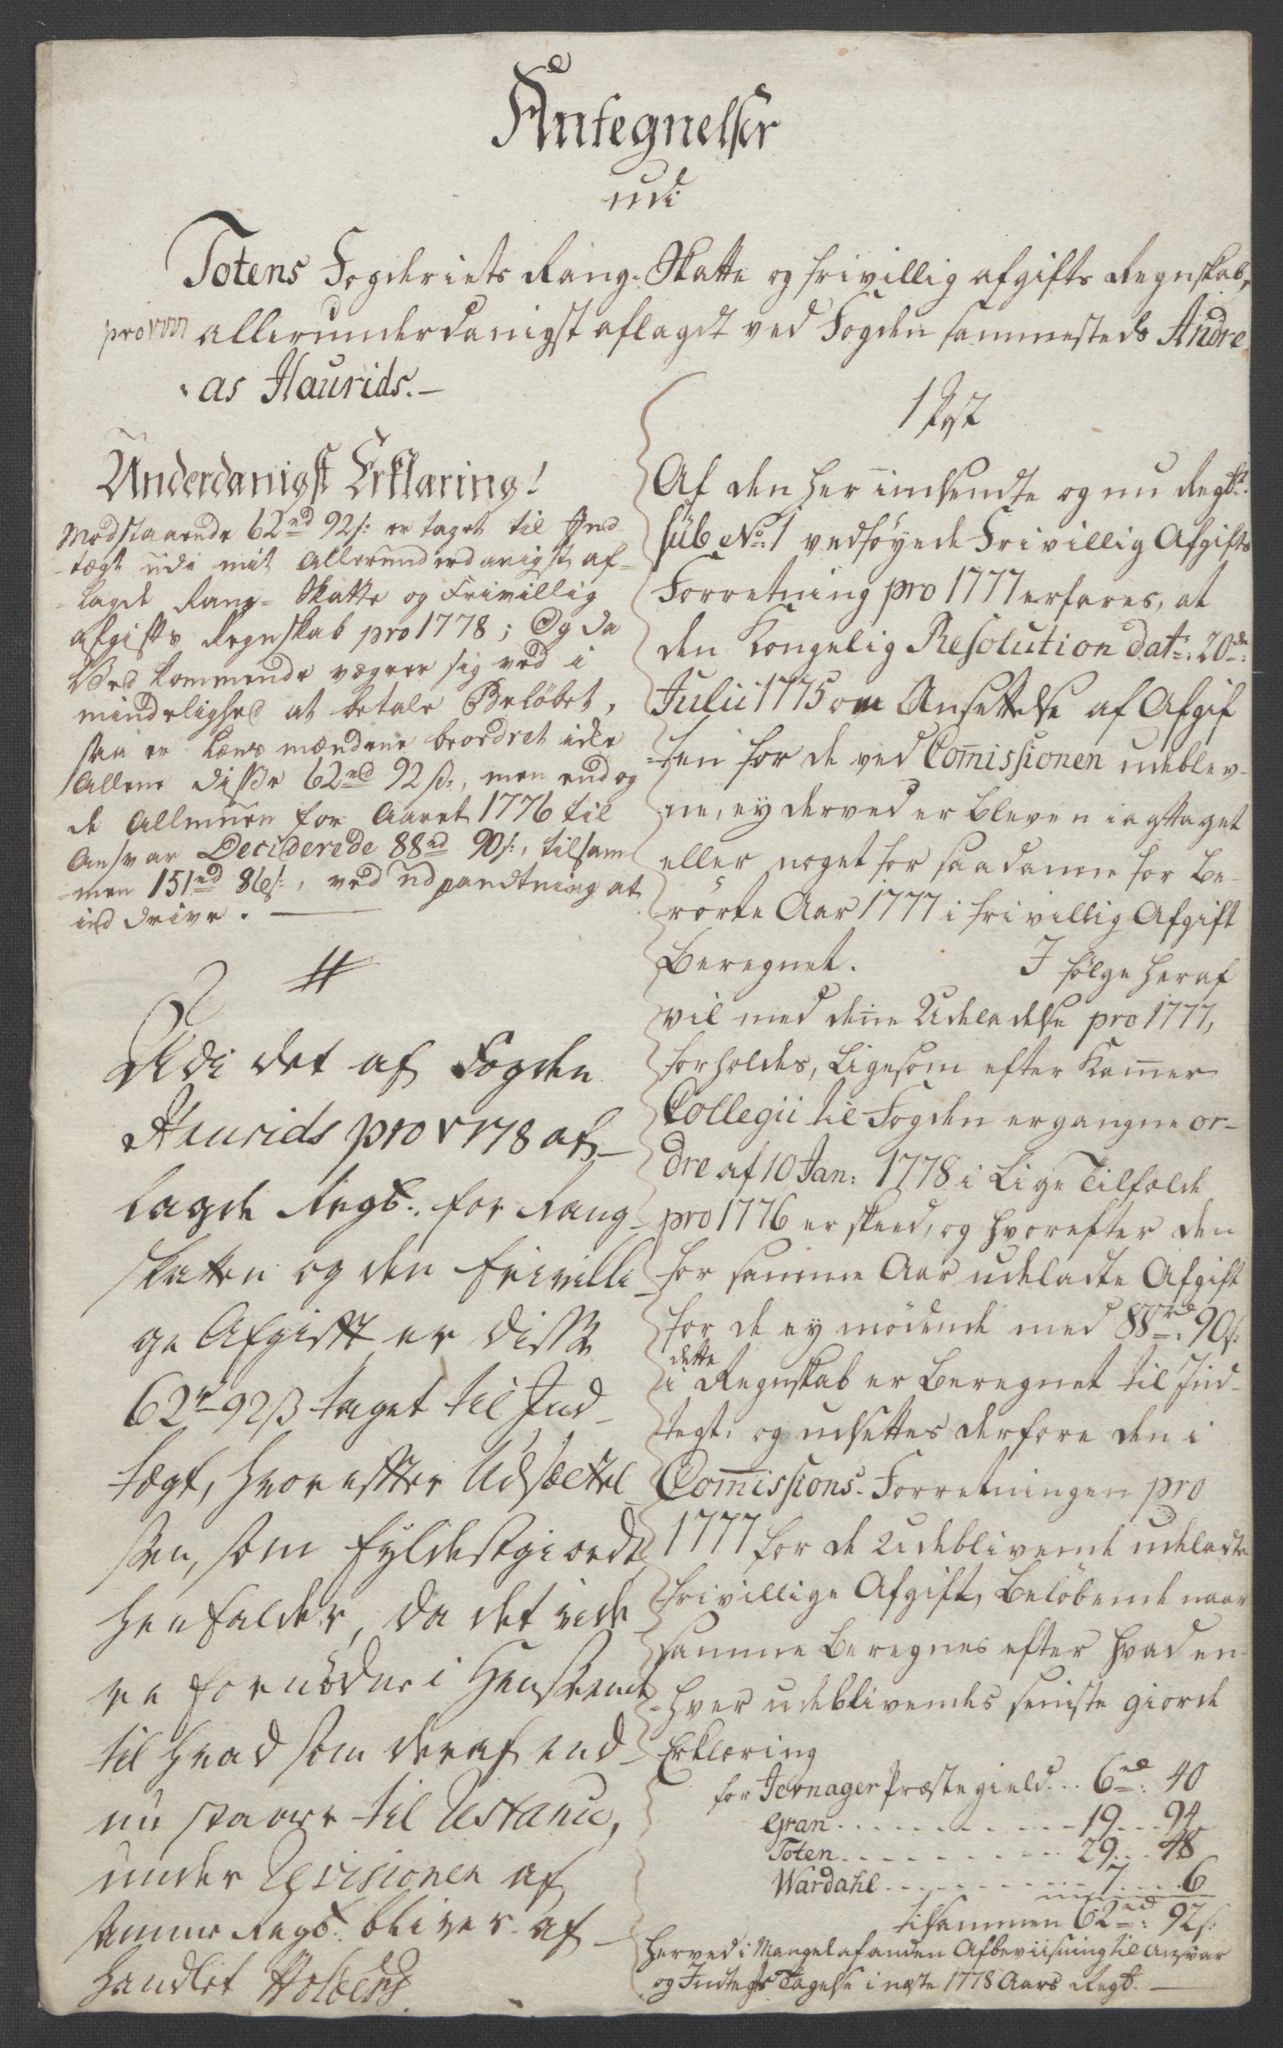 Antegnelser
udi
Totens Fogderiets Rang-Skatte og frivillig afgifts Regnskab,
pro 1777 allerunderdanigst aflagdt ved Fogden sammesteds Andre
as Haurids.-
Underdanigst Erklæring!
Modstaaende 62rd 92s: er taget til Ind
-tægt udi mit Allerunderdanigst af-
-lagde Rang-Skatte og Frivillig
afgifts Regnskab pro 1778; Og da
Vedkommende vægrer sig ved i
mindelighed at betale Beløbet,
saa er Lænsmændene beordret ikke
Allene disse 62rd 92s:, men end og
de Allmuen for Aaret 1776 til
Ansvar Deciderede 88rd 90s:, tilsam
-men 151rd 86s:, ved udpandtning at
inddrive. -
#
Udi det af Fogden
Haurids pro 1778 af-
lagde Regsk: for Rang-
skatten og den frivilli-
ge Afgift er disse
62r 92s taget til Ind-
tægt, hvorefter Udsættel-
sen, som fyldestgiordt
henfalder, da det vide-
re fornødne i Henseende
til hvad som deraf end-
nu staaer til Restance,
under Revisionen af
samme Regsk: bliver af-
handlet Holbers
1 Post
Af den her indsendte og nu Regsk:
sub No: 1 vedføyede Frivillig Afgifts
Forretning pro 1777 erfares, at
den Kongelig Resolution dat: 20de
Julii 1775 om Ansettelse af Afgif
-ten for de ved Comissionen udeblev-
ne, ey derved er bleven iagttaget
eller noget for saadanne for be-
rørte Aar 1777 i frivillig Afgift
beregnet. I følge heraf
vil med denne Udeladelse pro 1777,
forholdes, ligesom efter Kammer
Collegii til Fogden ergangne or-
dre af 10 Jan: 1778 i lige Tilfælde
pro 1776 er skeed, og hvorefter den
for samme Aar udeladte Afgift
for de ey mødende med 88rd: 90s:
dette
i Regnskab er beregnet til Ind-
tegt. og udsettes derfore den i
Comissions-Forretningen pro
1777 for de Udeblivende udeladte
frivillige Afgift, beløbende naar
samme beregnes efter hvad en-
-hver udeblivendes seniste giorde
Erklæring
for Jevnager Præstegield... 6rd: 40
Gran.......... 19... 94
Toten.......... 29... 48
Wardahl.......... 7.... 6
tilsammen 62rd: 92s:
herved i Mangel af anden Afbeviisning til Ansvar
og Indtegts Tagelse i næste 1778 Aars Regsk: -